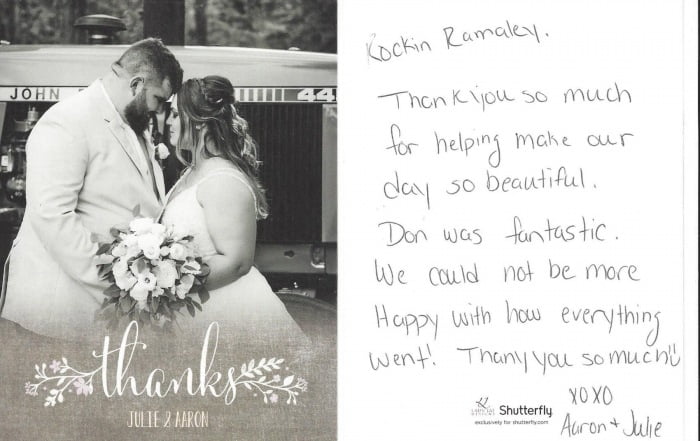 JOHN
44
thanks
JULIE & AARON
Rockin Ramaley.
Thank you so much
for helping make our
day so beautiful.
Don was fantastic.
We could not be more
Happy with how everything
went! Thany you so much!
XOXO
Aaron + Julie
Shutterfly
exclusively for shutterfly.com